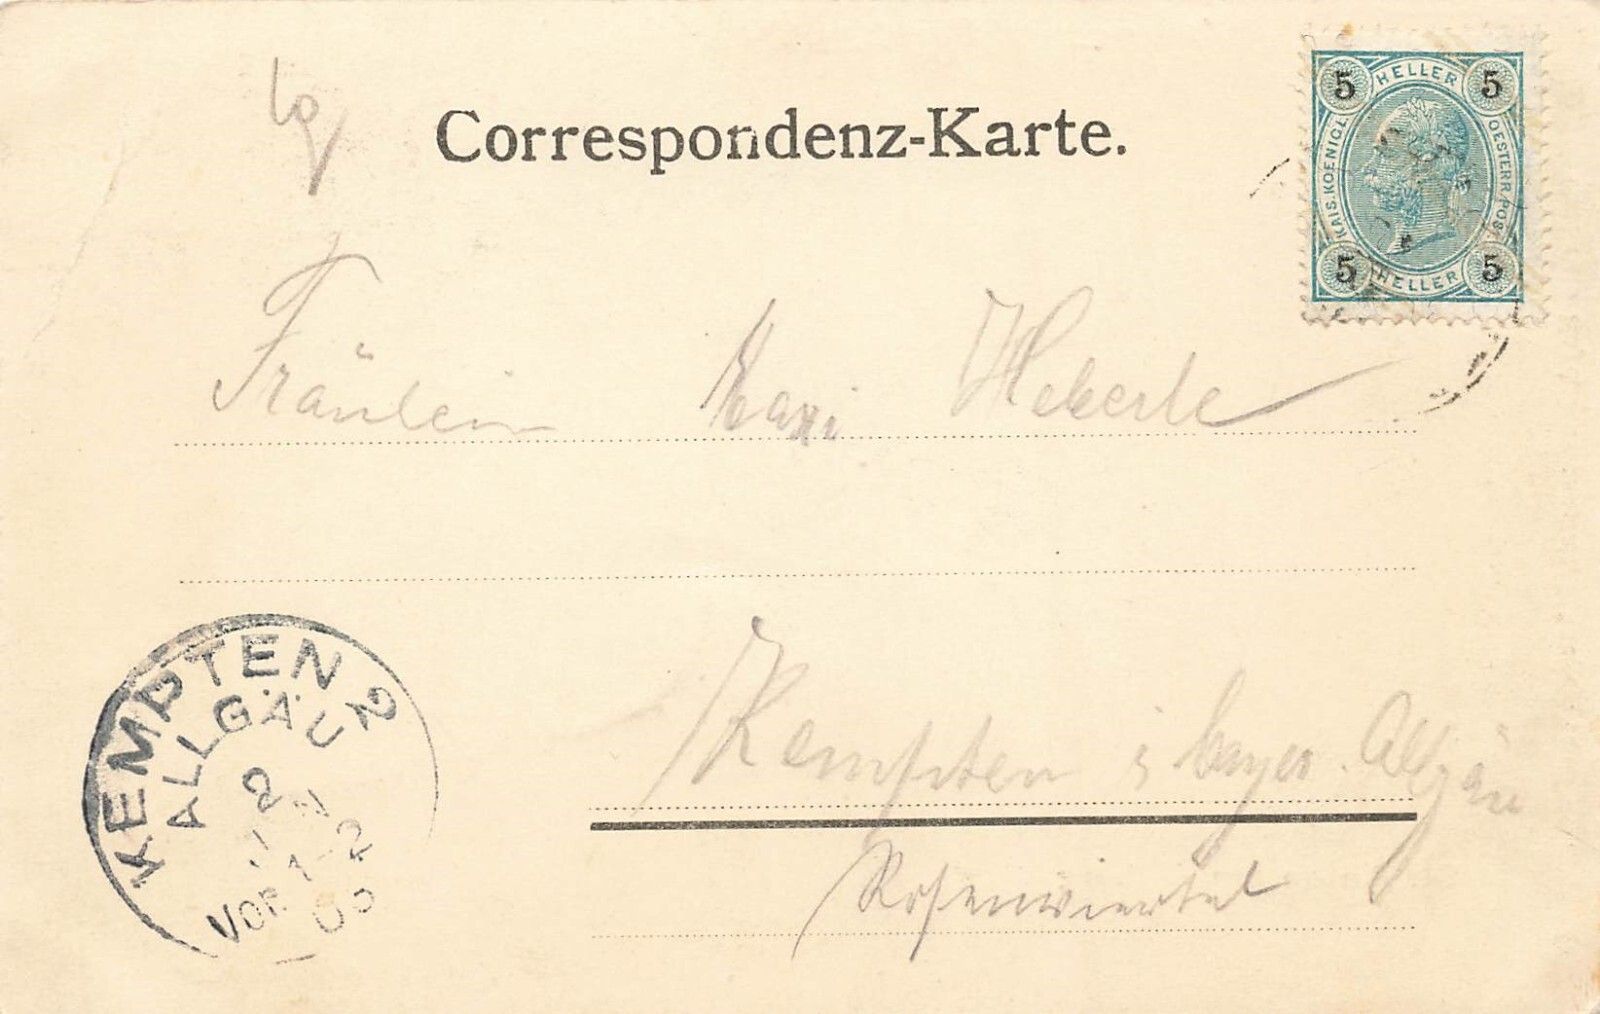 Correspondenz-Karte.
5 HELLER 5
KAIS. KOENIGL. OESTERR. POST
5 HELLER 5
Fräulein Maxi Heberle
Kempten i bayer. Allgäu
Rosenviertel
KEMPTEN 2
ALLGÄU
2
VOR 1-2